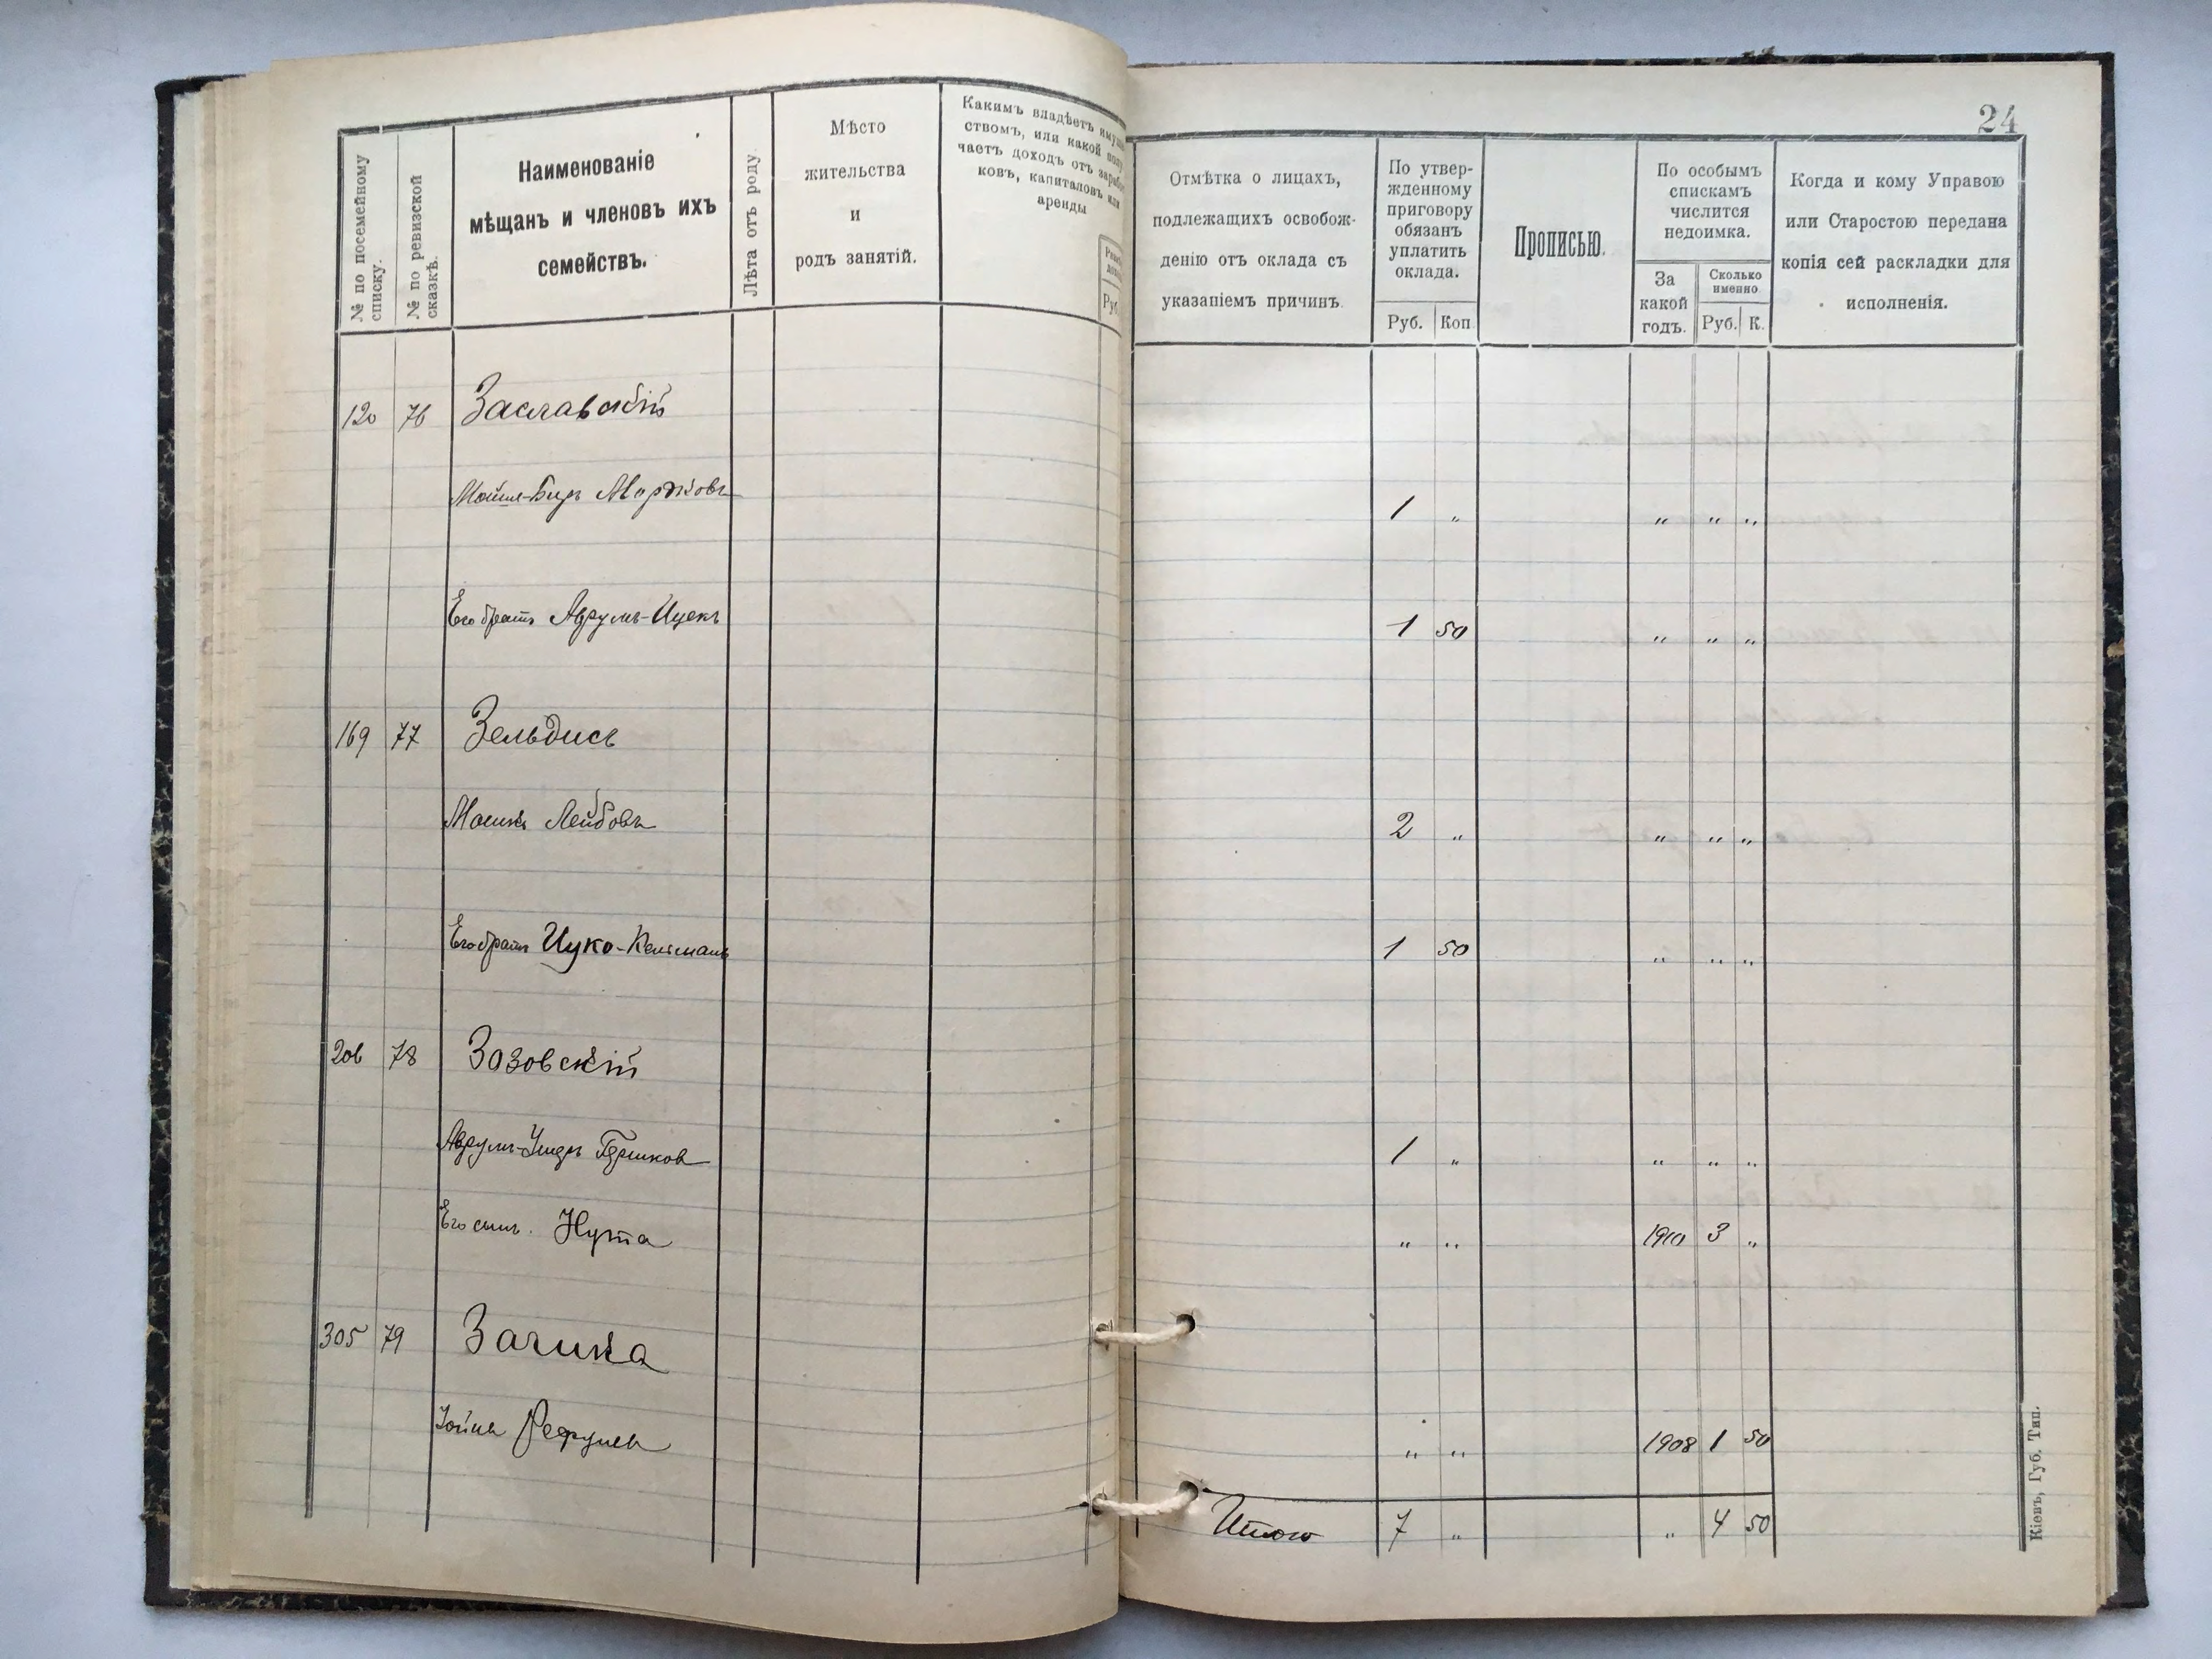 24
№ по посемейному
списку.
№ по ревизской
сказкѣ.
Наименованіе
мѣщанъ и членовъ ихъ
семействъ.
Лѣта отъ роду.
Мѣсто
жительства
и
родъ занятій.
Какимъ владѣетъ имуще
ствомъ, или какой полу
чаетъ доходъ отъ зарабо
ковъ, капиталовъ или
аренды
Руб.
Отмѣтка о лицахъ,
подлежащихъ освобож-
денію отъ оклада съ
указаніемъ причинъ.
По утвер-
жденному
приговору
обязанъ
уплатить
оклада.
Руб. Коп.
Прописью.
По особымъ
спискамъ
числится
недоимка.
За
какой
годъ.
Сколько
именно
Руб. К.
Когда и кому Управою
или Старостою передана
копія сей раскладки для
исполненія.
120 76 Заславскій
Мордковъ 1 „ „ „ „
Его братъ Аврумъ-Ицекъ 1 50 „ „ „
169 77 Зельдисъ
Мошко Лейбовъ 2 „ „ „ „
Его братъ Ицко-Кельманъ 1 50 „ „ „
206 78 Зазовскій
Аврумъ- Гершков 1 „ „ „ „
Его сынъ. Нута „ „ 1910 3 „
305 79 Зачика
„ „ 1908 1 50
Итого 7 „ „ 4 50
Кіевъ, Губ. Тип.